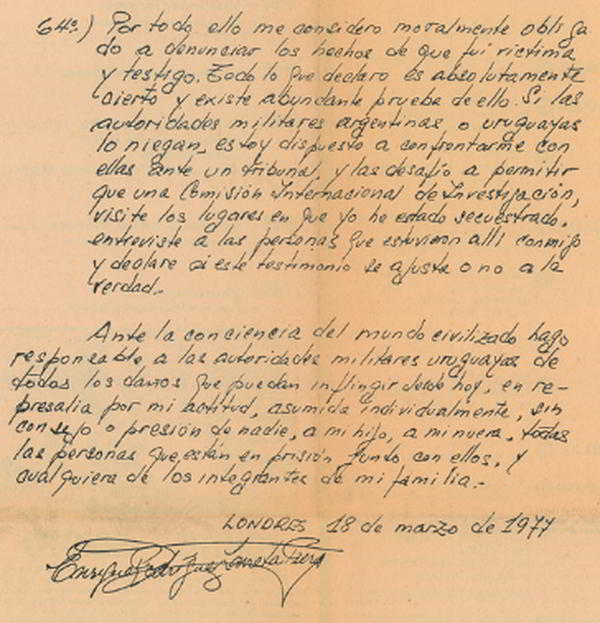 64º.) Por todo ello me considero moralmente obliga
do a denunciar los hechos de que fui victima
y testigo. Todo lo que declaro es absolutamente
cierto y existe abundante prueba de ello. Si las
autoridades militares argentinas o uruguayas
lo niegan, estoy dispuesto a confrontarme con
ellas ante un tribunal, y las desafío a permitir
que una Comisión Internacional de Investigación,
visite los lugares en que yo he estado secuestrado,
entreviste a las personas que estuvieron allí conmigo
y declare si este testimonio se ajusta o no a la
verdad.-
Ante la conciencia del mundo civilizado hago
responsable a las autoridades militares uruguayas de
todos los daños que puedan inflingir desde hoy, en re-
presalia por mi actitud, asumida individualmente, sin
consejo o presión de nadie, a mi hijo, a mi nuera, todas
las personas que están en prisión junto con ellos, y
cualquiera de los integrantes de mi familia.-
LONDRES 18 de marzo de 1977
Enrique Rodríguez Larreta Piera